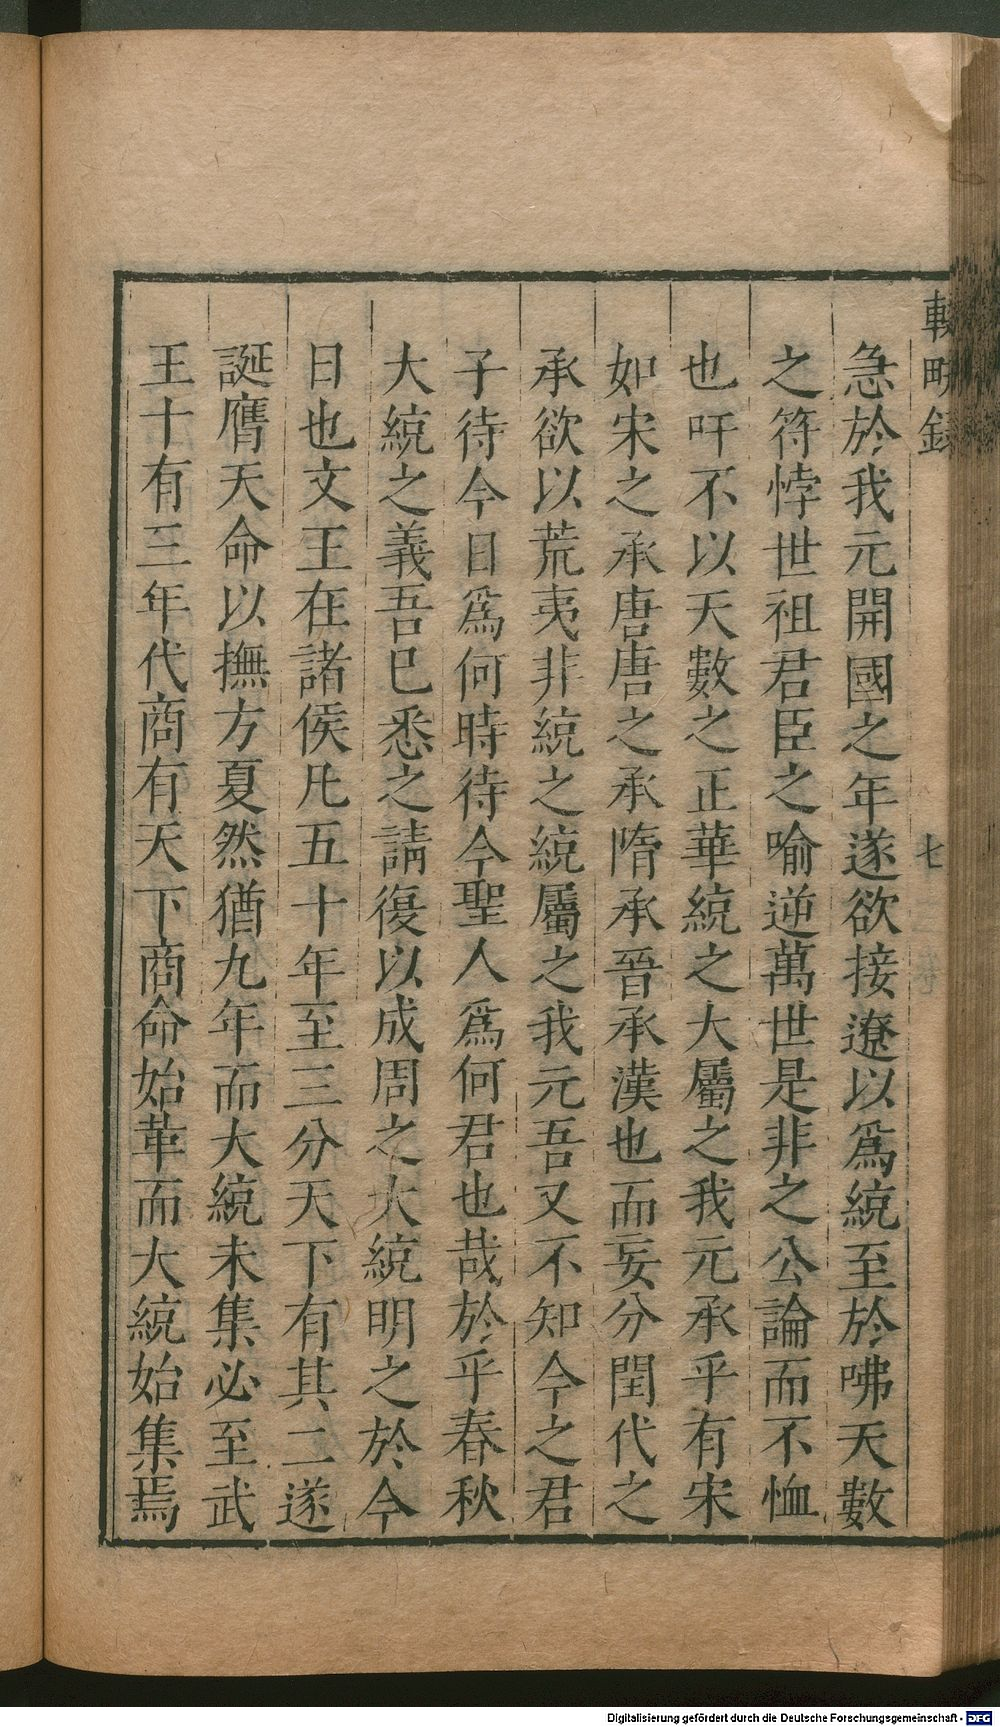 輟畊録
七
急於我元開國之年遂欲接遼以爲統至於咈天數
之符悖世祖君臣之喻逆萬世是非之公論而不恤
也吁不以天數之正華統之大屬之我元承乎有宋
如宋之承唐唐之承隋承晉承漢也而妄分閏代之
承欲以荒夷非統之統屬之我元吾又不知今之君
子待今日爲何時待今聖人爲何君也哉於乎春秋
大統之義吾已悉之請復以成周之大統明之於今
日也文王在諸侯凡五十年至三分天下有其二遂
誕膺天命以撫方夏然猶九年而大統未集必至武
王十有三年代商有天下商命始革而大統始集焉
Digitalisierung gefördert durch die Deutsche Forschungsgemeinschaft - DFG